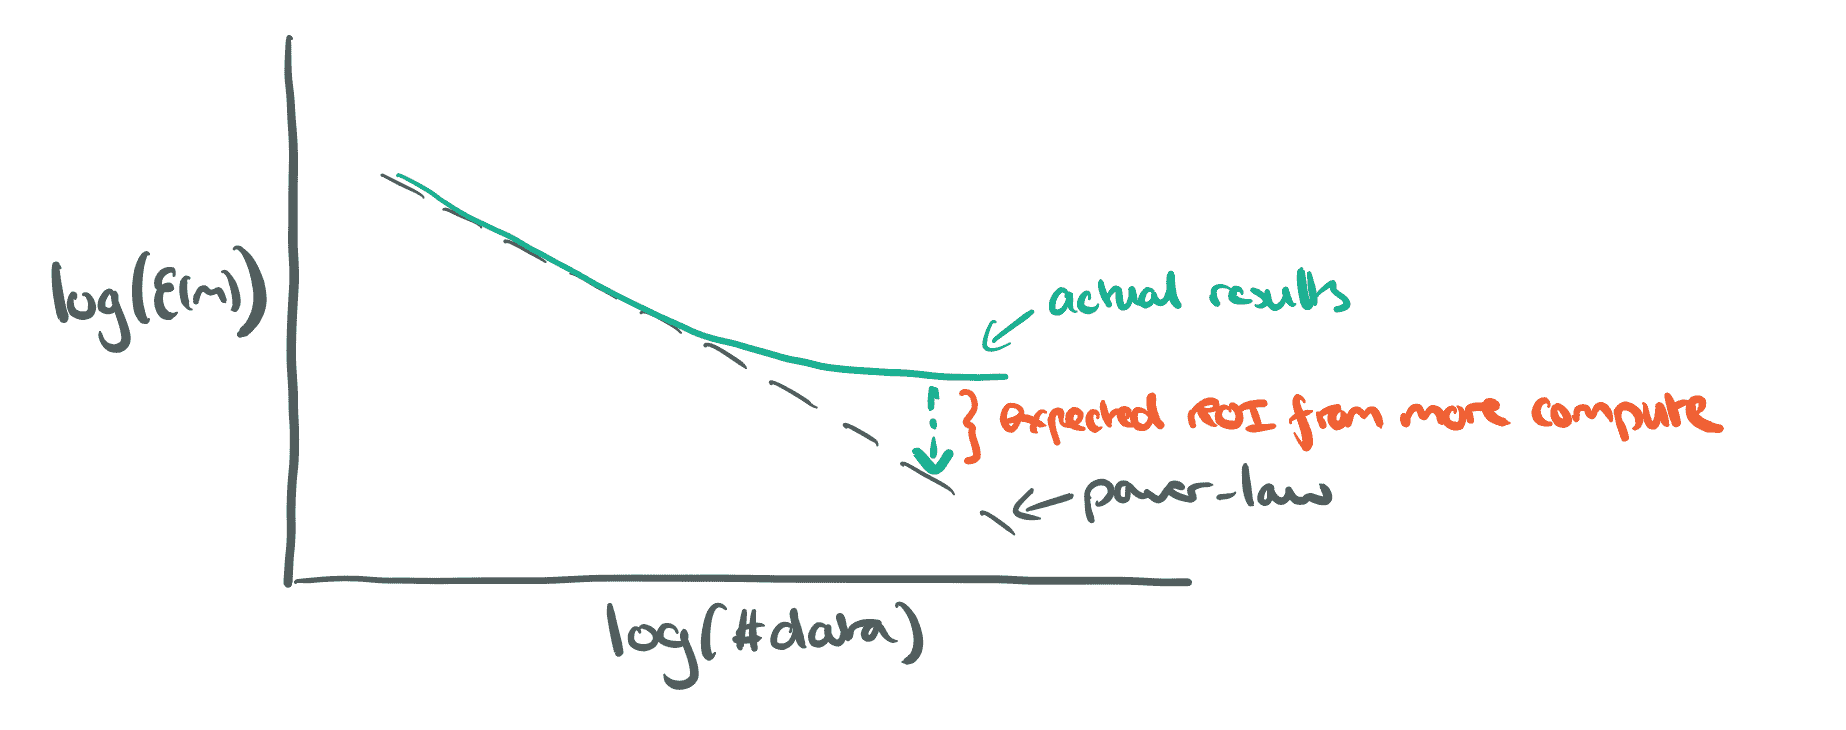 log(ε(m))
actual results
expected ROI from more compute
power-law
log(#data)